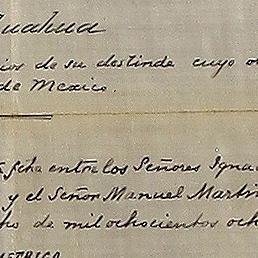 huahua
ios de su deslinde cuyo o
de Mexico.
fcha entre los Señores Igna
y el Señor Manuel Marti
ho de mil ochocientos och
METRICO